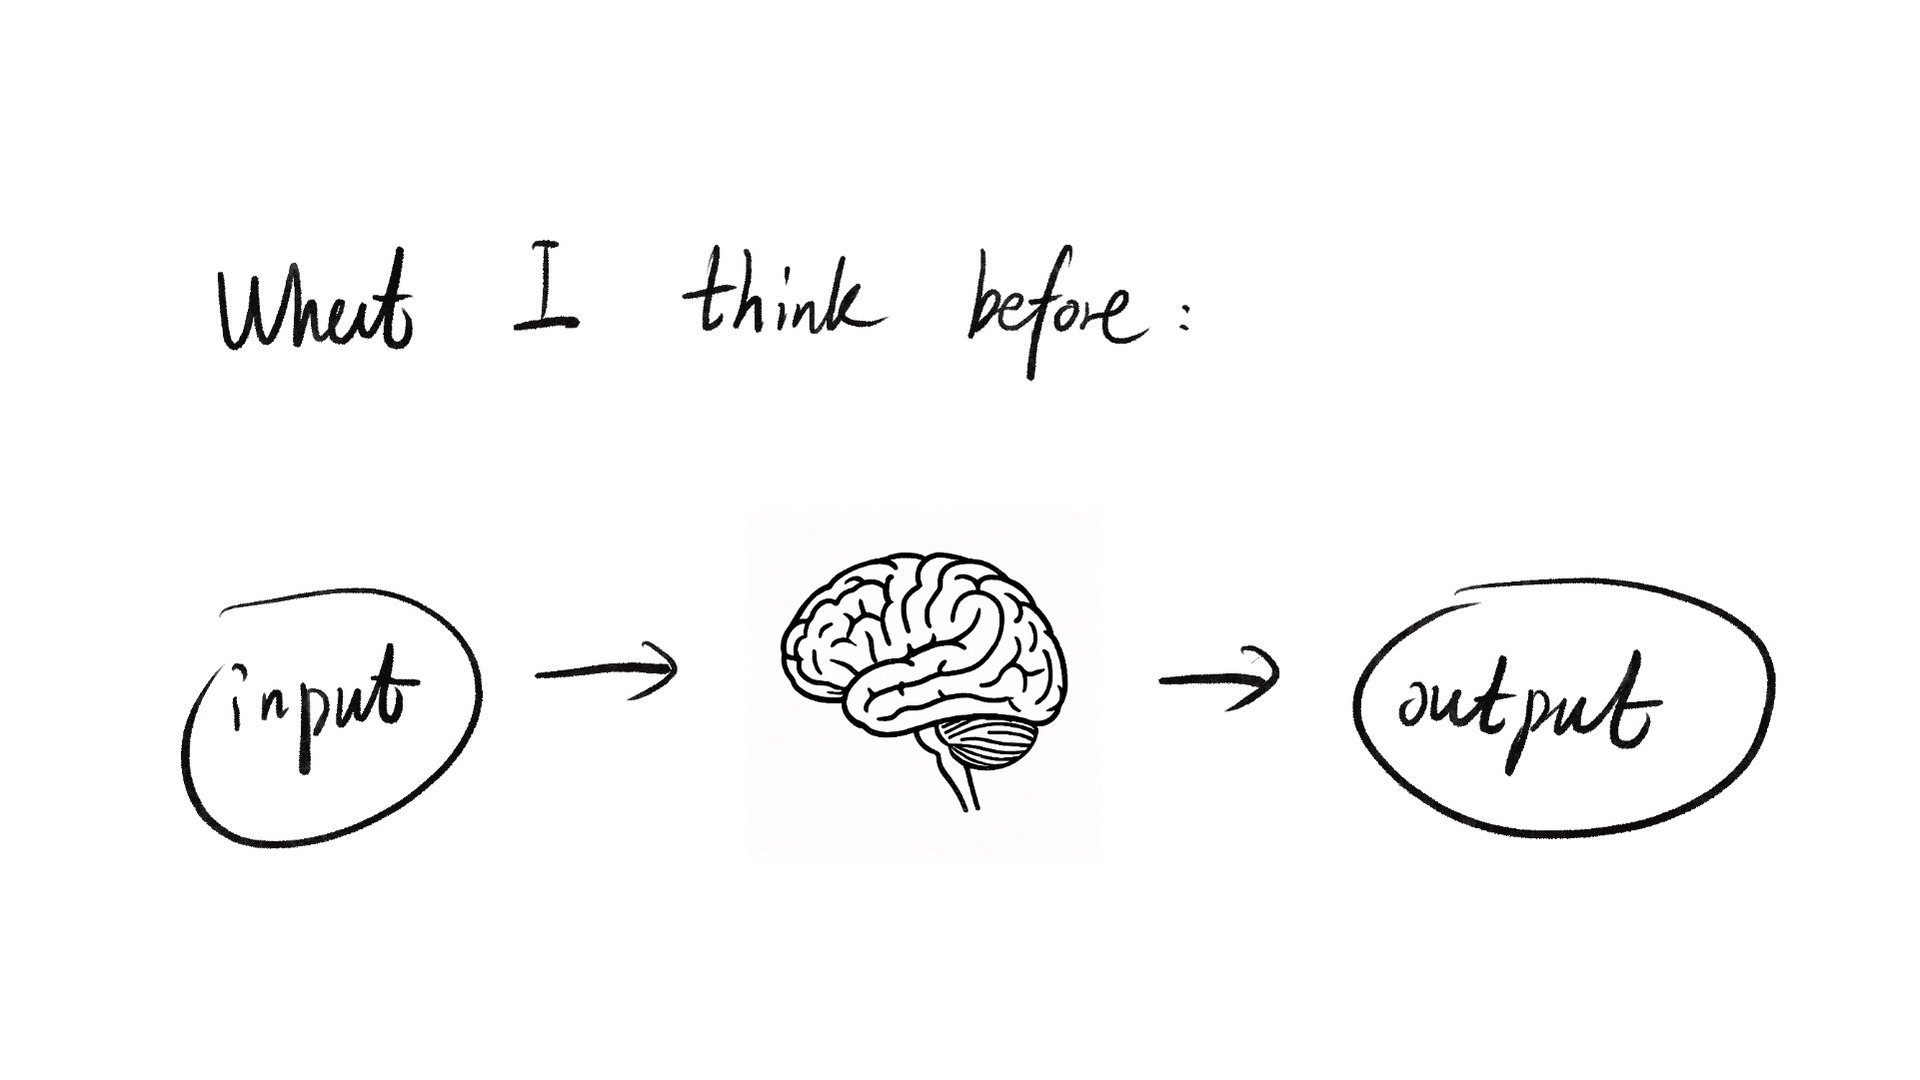 What I think before:
input
output